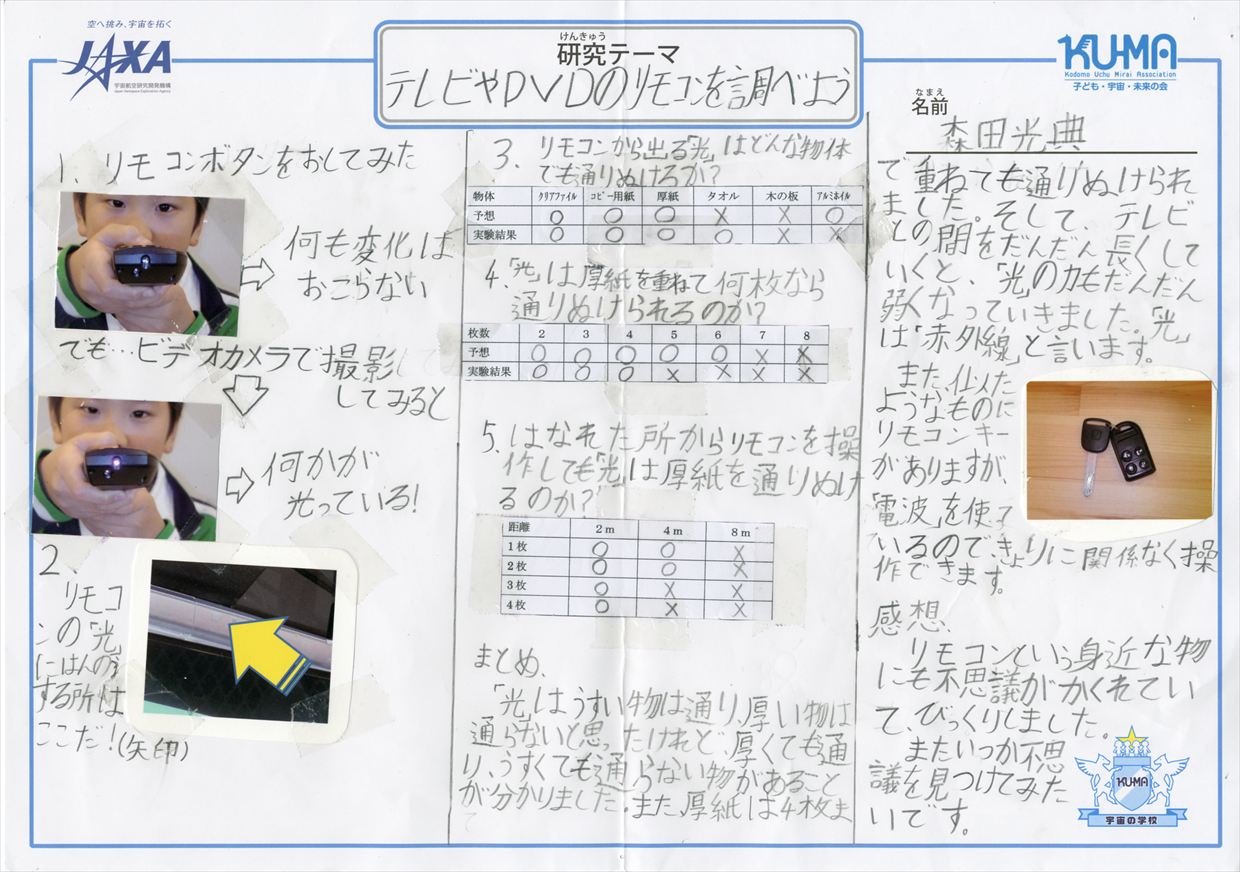 空へ挑み、宇宙を拓く
JAXA
宇宙航空研究開発機構
Japan Aerospace Exploration Agency
けんきゅう
研究テーマ
テレビやDVDのリモコンを調べよう
KU-MA
Kodomo Uchu Mirai Association
子ども・宇宙・未来の会
なまえ
名前
森田光典
1、リモコンボタンをおしてみた
何も変化は
おこらない
でも…ビデオカメラで撮影して
してみると
何かが
光っている!
2、
リモコ
ンの「光」
にはんのう
する所は
ここだ!(矢印)
3、リモコンから出る「光」はどんな物体
でも通りぬけるか?
物体 クリアファイル コピー用紙 厚紙 タオル 木の板 アルミホイル
予想 ○ ○ ○ × × ○
実験結果 ○ ○ ○ ○ × ×
4、「光」は厚紙を重ねて何枚なら
通りぬけられるのか?
枚数 2 3 4 5 6 7 8
予想 ○ ○ ○ ○ ○ × ×
実験結果 ○ ○ ○ × × × ×
5、はなれた所からリモコンを操
作しても「光」は厚紙を通りぬけ
るのか?
距離 2m 4m 8m
1枚 ○ ○ ×
2枚 ○ ○ ×
3枚 ○ × ×
4枚 ○ × ×
まとめ、
「光」はうすい物は通り、厚い物は
通らないと思ったけれど、厚くても通
り、うすくても通らない物があること
が分かりました。また、厚紙は4枚ま
で重ねても通りぬけられ
ました。そして、テレビ
との間をだんだん長くして
いくと、「光」の力もだんだん
弱くなっていきました。「光」
は「赤外線」と言います。
また、似た
ようなものに
リモコンキー
がありますが、
「電波」を使って
いるので、きょりに関係なく操
作できます。
感想、
リモコンという身近な物
にも不思議がかくれてい
て、びっくりしました。
またいつか不思
議を見つけてみた
いです。
KU-MA
宇宙の学校